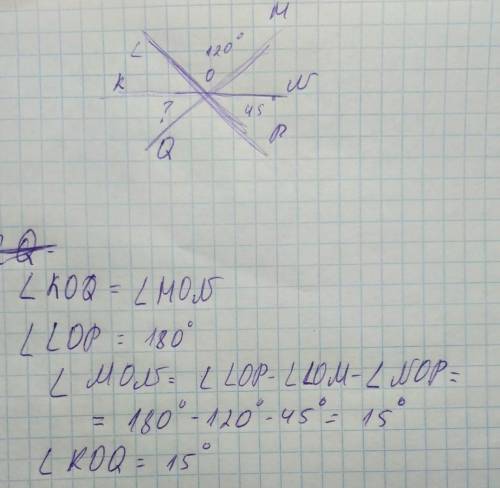 M
L 120°
K O N
? 45°
Q P
∠KOQ = ∠MON
∠LOP = 180°
∠MON = ∠LOP - ∠LOM - ∠NOP =
= 180° - 120° - 45° = 15°
∠KOQ = 15°